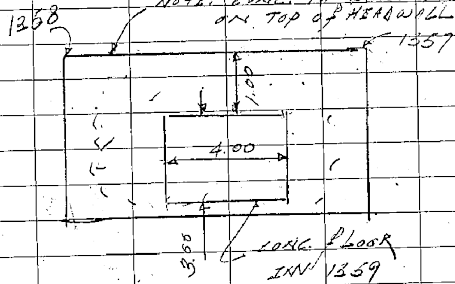 NOTE:
ON TOP OF HEADWALL
1358
1357
1.00
4.00
3.00
CONC. FLOOR
INV 1359